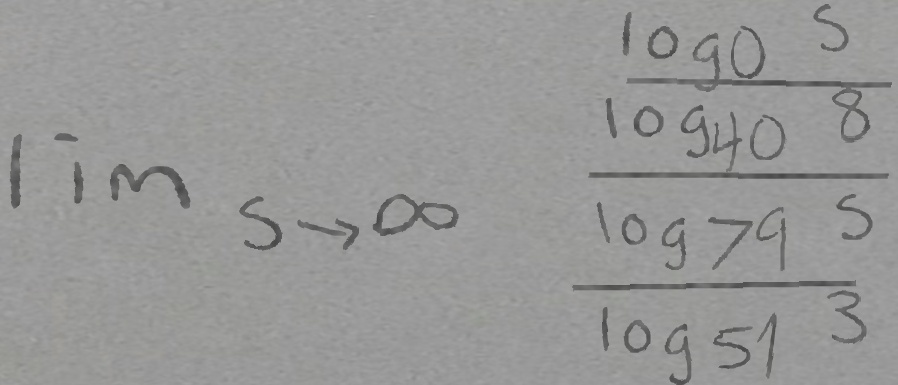 lim s→∞
log0 s
log40 8
log79 s
log51 3